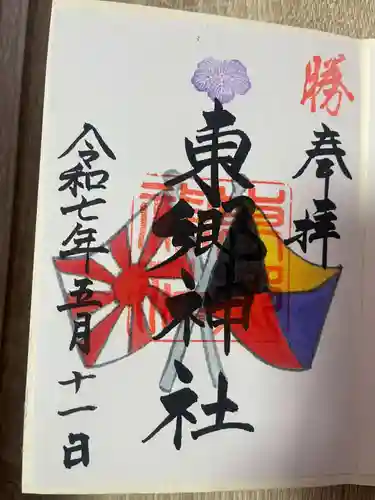 勝
奉拝
東郷神社
令和七年五月十一日